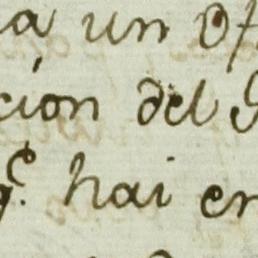 a un Of
cion del
q.e hai en